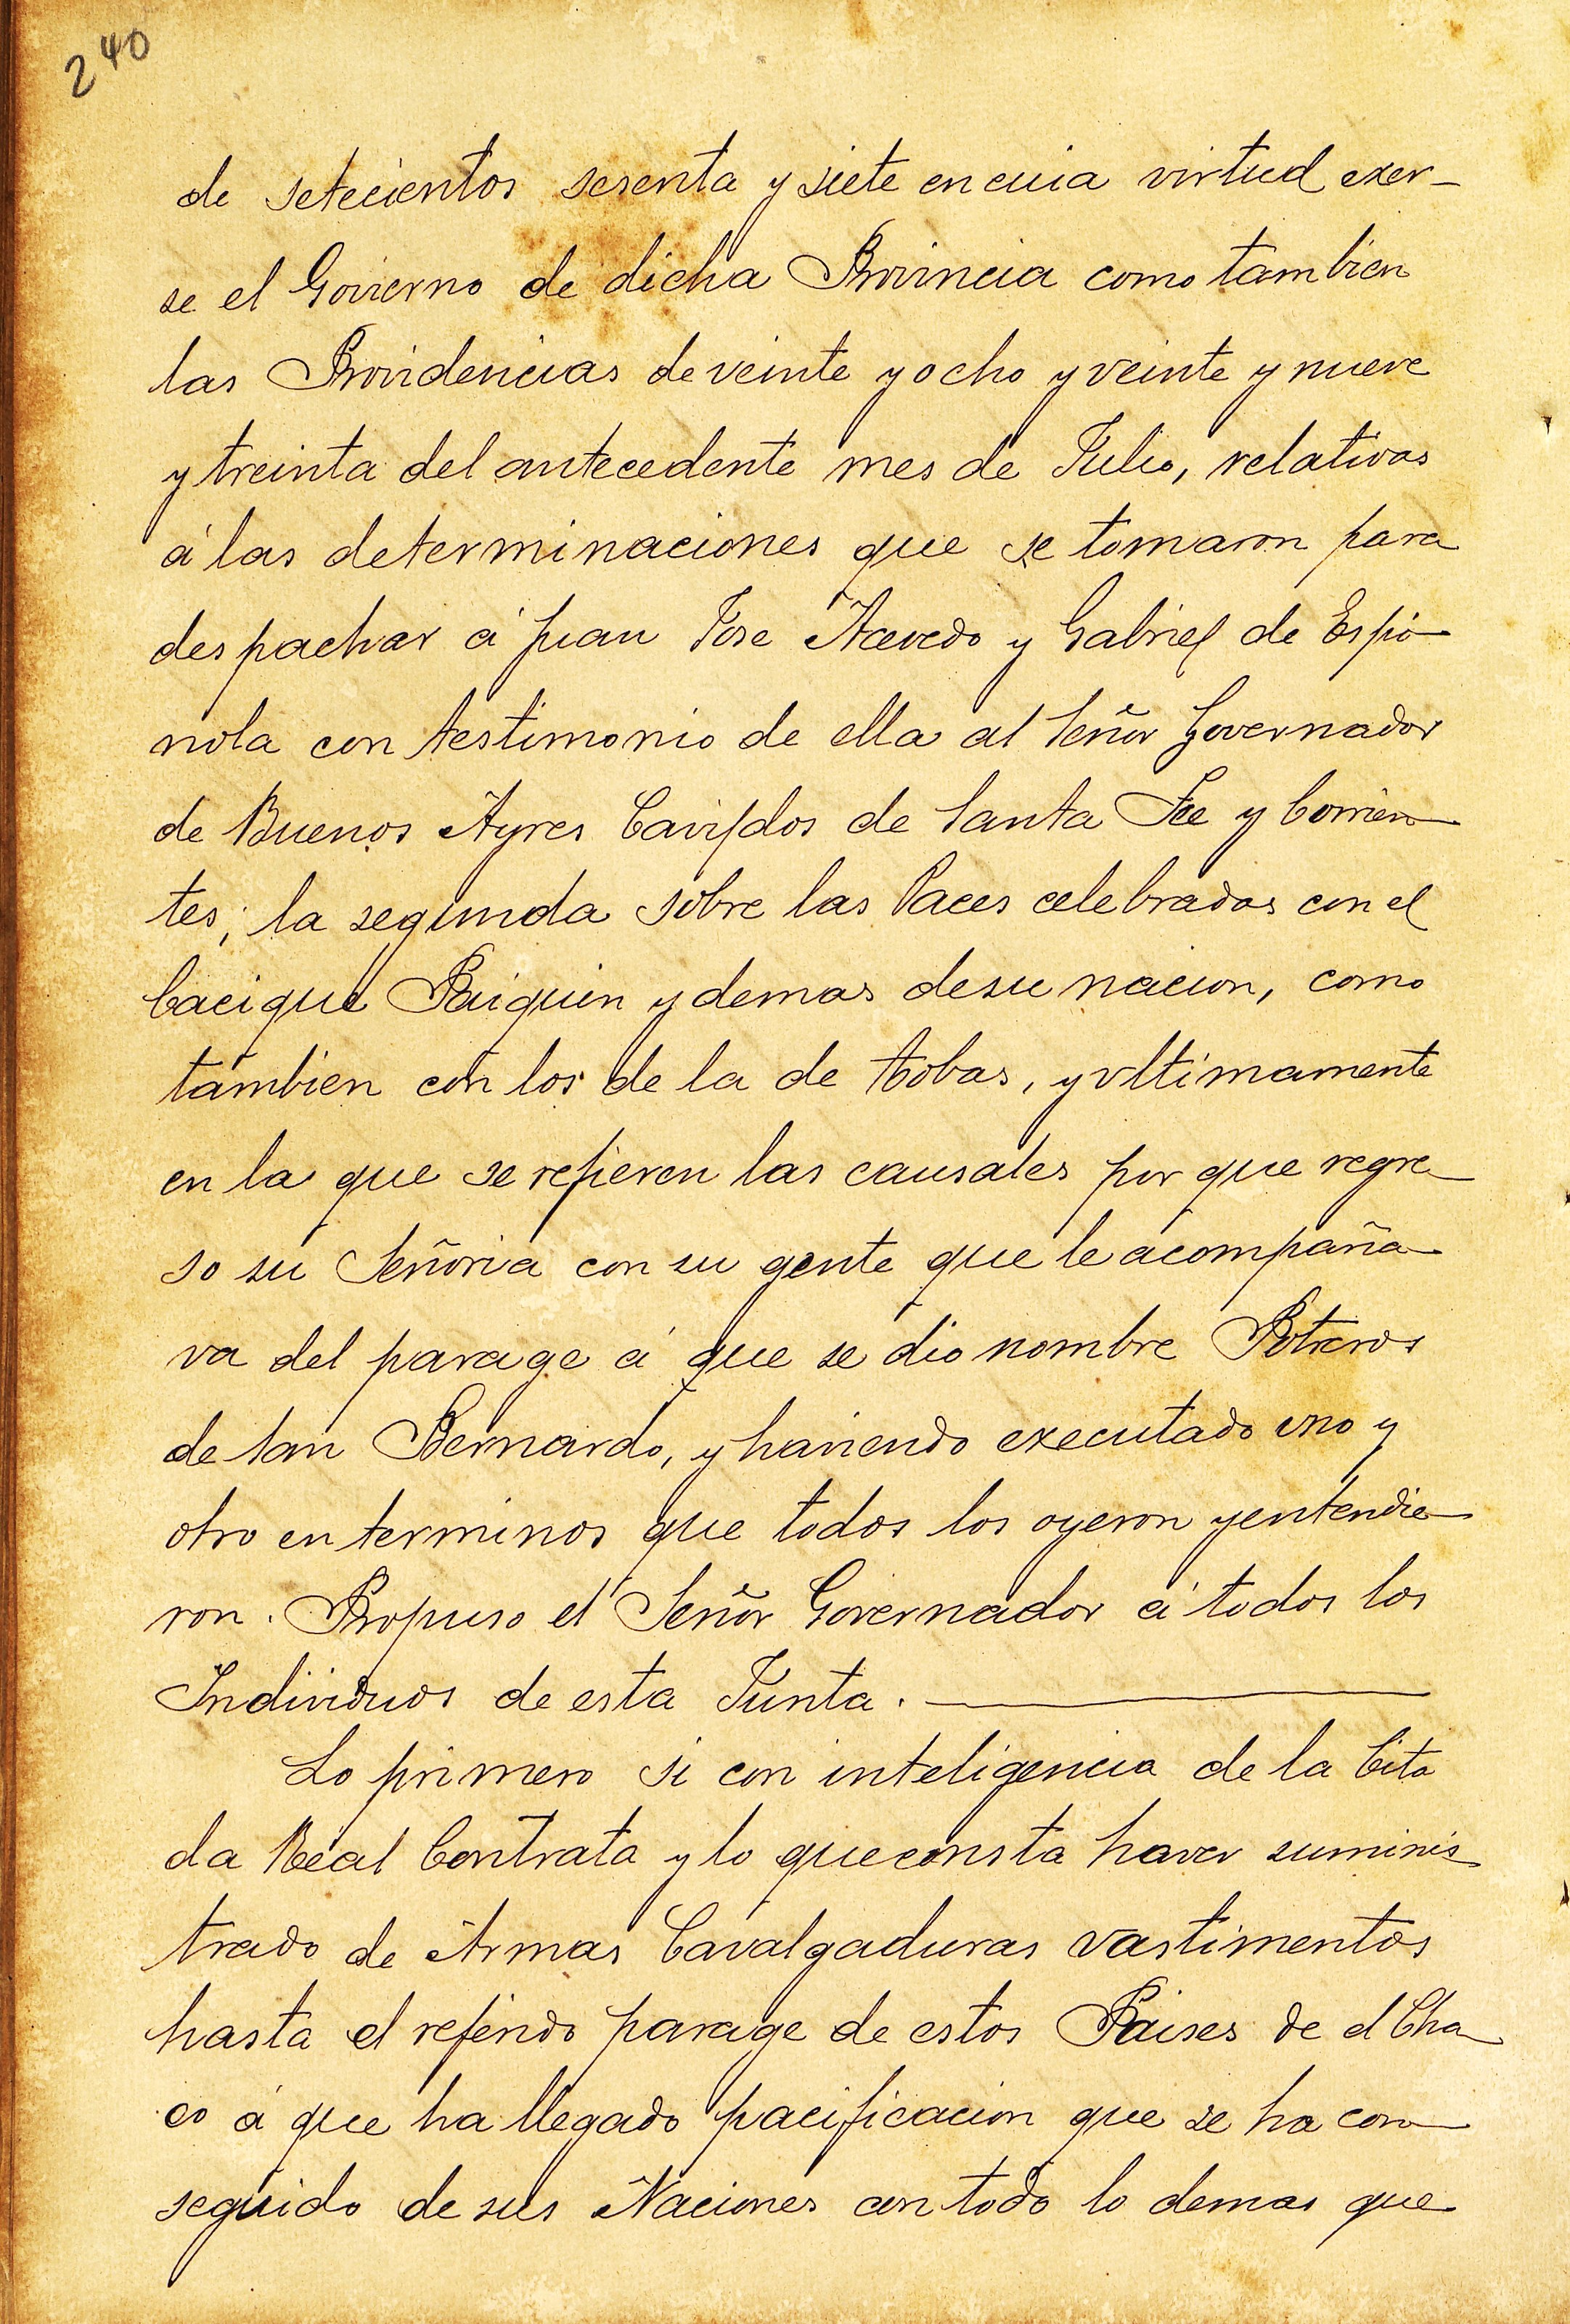 240
de setecientos sesenta y siete en cuia virtud exer-
se el Govierno de dicha Provincia como tambien
las Providencias de veinte y ocho y veinte y nueve
y treinta del antecedente mes de Julio, relativas
á las determinaciones que se tomaron para
despachar á Juan Jose Acevedo y Gabriel de Espi-
nola con testimonio de ella al Señor Governador
de Buenos Ayres Cavildos de Santa Fee y Corrien-
tes; la segunda sobre las Paces celebradas con el
Cacique Paiquin y demas de su nacion, como
tambien con los de la de Tobas, y vltimamente
en la que se refieren las causales por que regre-
so su Señoria con su gente que le acompaña-
va del parage á que se dio nombre Potreros
de San Bernardo, y haviendo executado vno y
otro en terminos que todos los oyeron y entendie-
ron. Propuso el Señor Governador á todos los
Individuos de esta Junta.
Lo primero si con inteligencia de la Cita
da Real Contrata y lo que consta haver suminis-
trado de Armas Cavalgaduras vastimentos
hasta el referido parage de estos Paises de el Cha-
co á que ha llegado pacificacion que se ha con-
seguido de sus Naciones con todo lo demas que